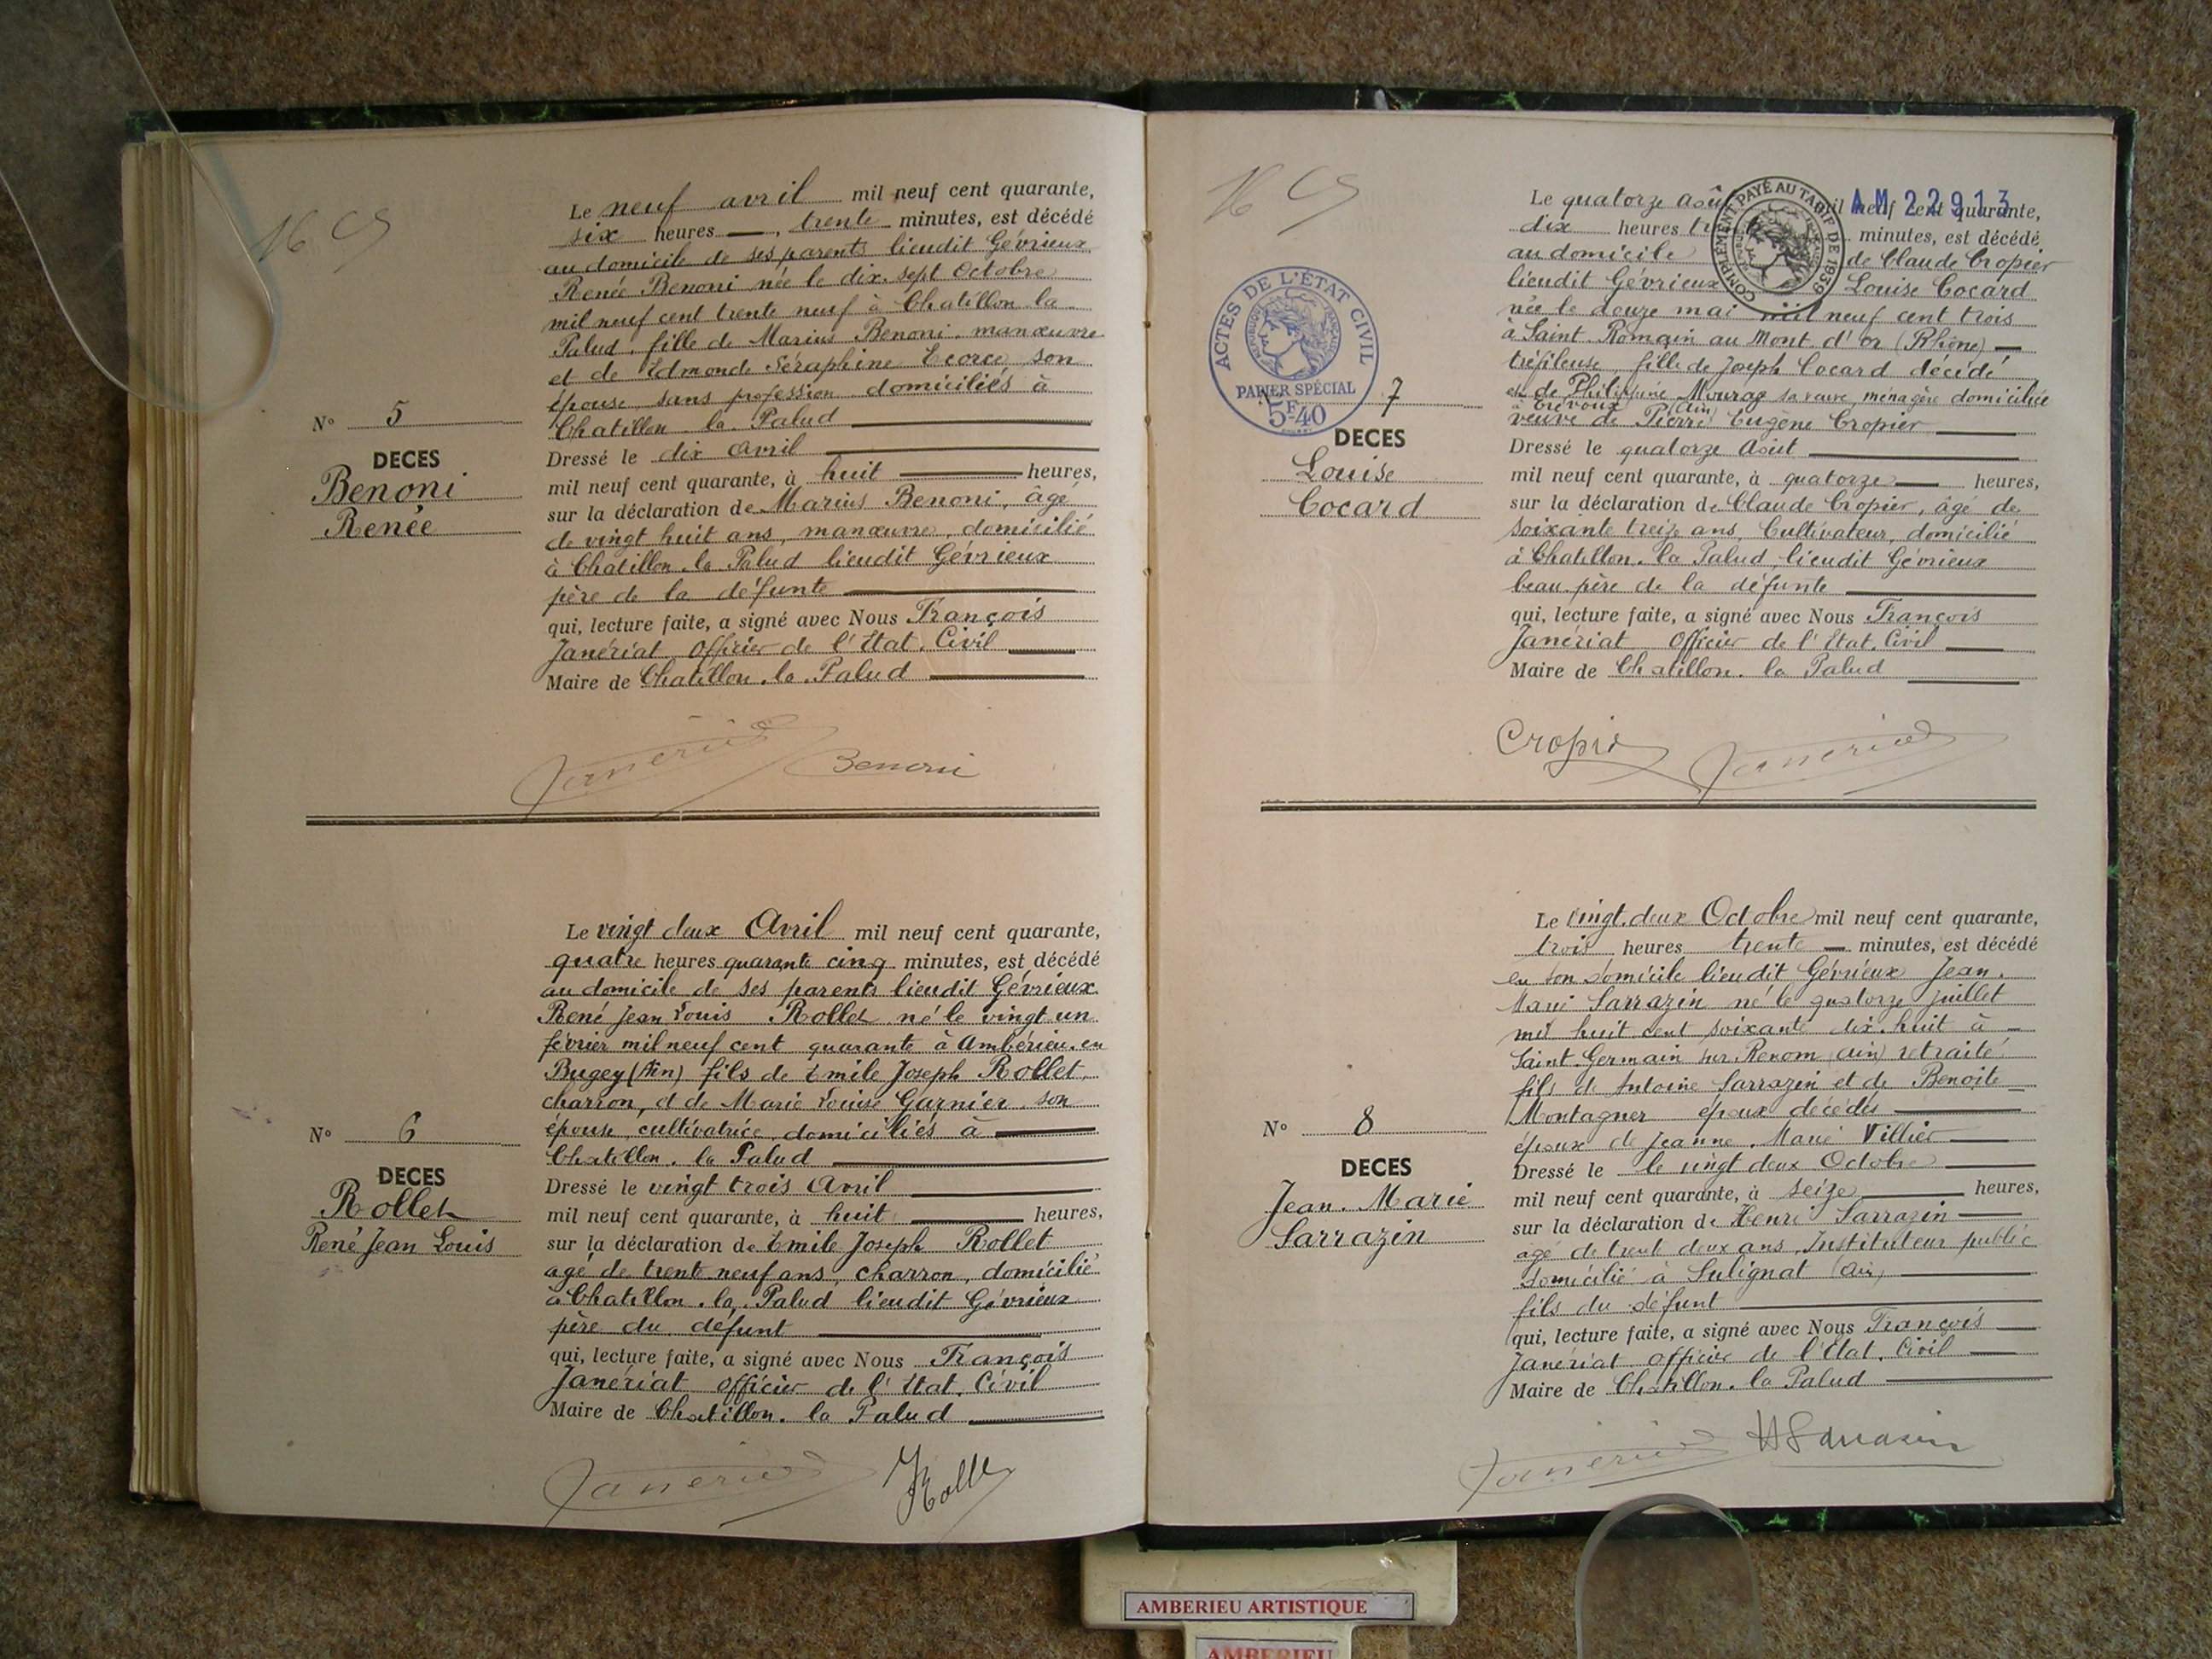 Le neuf avril mil neuf cent quarante,
six heures trente minutes, est décédé
au domicile de ses parents lieudit Gévrieux
Renée Benoni née le dix-sept Octobre
mil neuf cent trente neuf à Chatillon la
Palud, fille de Marius Benoni, manœuvre
et de Edmonde Séraphine Ecorce, son
épouse sans profession domiciliés à
Chatillon la Palud
Dressé le dix Avril
mil neuf cent quarante, à huit heures,
sur la déclaration de Marius Benoni, âgé
de vingt huit ans, manœuvre, domicilié
à Chatillon la Palud lieudit Gévrieux
père de la défunte
qui, lecture faite, a signé avec Nous François
Janériat Officier de l'Etat. Civil
Maire de Chatillon. la. Palud
N° 5
DECES
Benoni
Renée
Janériat
Benoni
Le vingt deux Avril mil neuf cent quarante,
quatre heures quarante cinq minutes, est décédé
au domicile de ses parents lieudit Gévrieux
René Jean Louis Rollet né le vingt un
février mil neuf cent quarante à Ambérieu. en
Bugey (Ain) fils de Emile Joseph Rollet,
charron, et de Marie Louise Garnier son
épouse, cultivatrice, domiciliés à
Chatillon. la Palud
Dressé le vingt trois Avril
mil neuf cent quarante, à huit heures,
sur la déclaration de Emile Joseph Rollet
agé de trent neuf ans, charron, domicilié
à Chatillon. la. Palud lieudit Gévrieux
père du défunt
qui, lecture faite, a signé avec Nous François
Janériat officier de l'Etat. Civil
Maire de Chatillon. la Palud
N° 6
DECES
Rollet
René Jean Louis
Janériat
Le quatorze Août mil neuf cent quarante,
AM 22913
dix heures minutes, est décédé
au domicile de Claude Cropier
lieudit Gévrieux Louise Cocard
née le douze mai mil neuf cent trois
à Saint. Romain au Mont. d'or (Rhône)
tréfileuse, fille de Joseph Cocard décédé
et de Philippine Mouraz sa veuve, ménagère domiciliée
à Trévoux (Ain)
veuve de Pierre Eugène Cropier
Dressé le quatorze Août
mil neuf cent quarante, à quatorze heures,
sur la déclaration de Claude Cropier, âgé de
soixante treize ans, Cultivateur, domicilié
à Chatillon. la Palud, lieudit Gévrieux
beau. père de la défunte
qui, lecture faite, a signé avec Nous François
Janériat Officier de l'Etat. Civil
Maire de Chatillon. la Palud
COMPLÉMENT PAYÉ AU TARIF DE 1939
ACTES DE L'ÉTAT CIVIL
RÉPUBLIQUE FRANÇAISE
PAPIER SPÉCIAL
5F.40
7
DECES
Louise
Cocard
Cropier
Janériat
Le vingt. deux Octobre mil neuf cent quarante,
trois heures trente minutes, est décédé
en son domicile lieudit Gévrieux Jean.
Marie Sarrazin né le quatorze juillet
mil huit cent soixante dix. huit à
Saint. Germain sur. Renom (Ain) retraité
fils de Antoine Sarrazin et de Benoîte
Montagner époux décédés
époux de Jeanne. Marie Villier
Dressé le le vingt deux Octobre
mil neuf cent quarante, à seize heures,
sur la déclaration de Henri Sarrazin
agé de trent deux ans, Instituteur public
domicilié à Sulignat (Ain)
fils du défunt
qui, lecture faite, a signé avec Nous François
Janériat officier de l'Etat. Civil
Maire de Chatillon. la Palud
N° 8
DECES
Jean. Marie
Sarrazin
Janériat
HSarrasin
AMBERIEU ARTISTIQUE
AMBERIEU